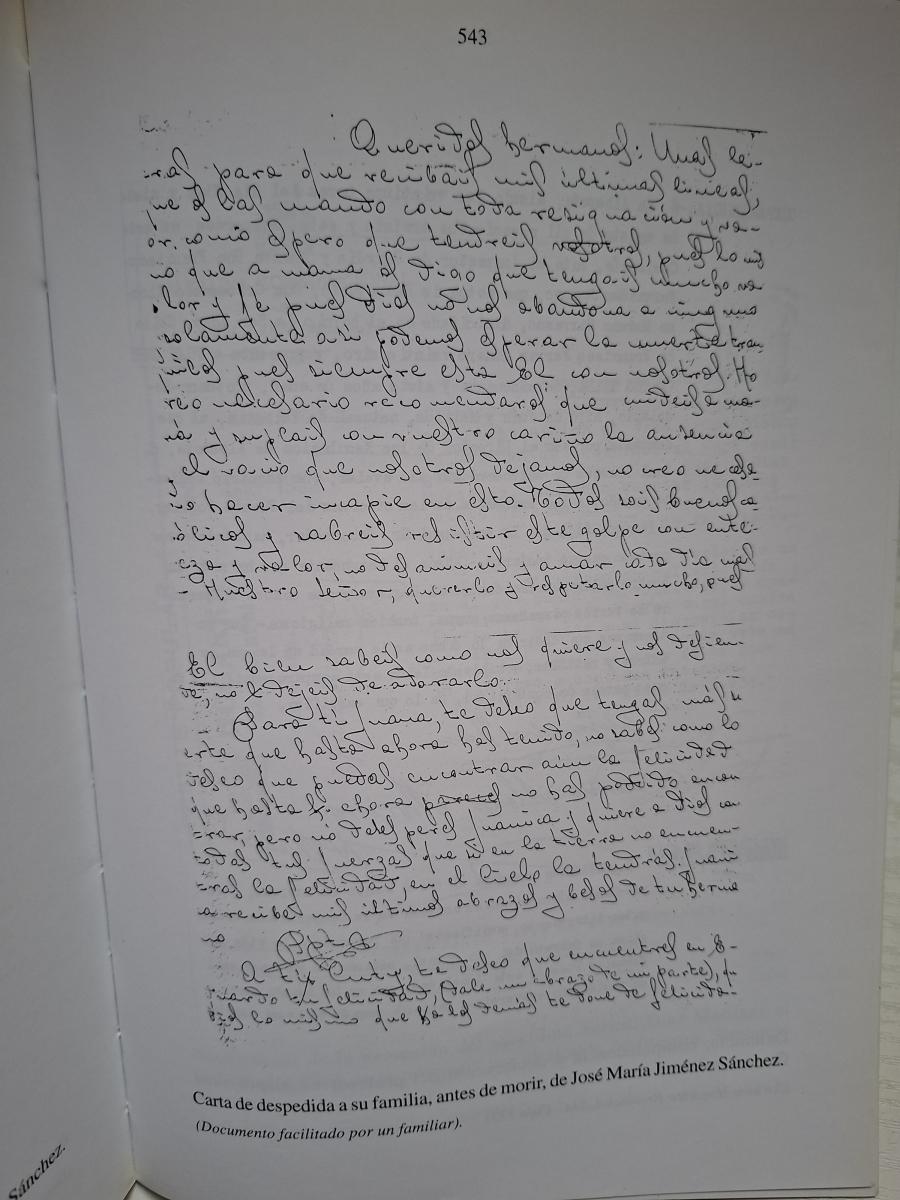 543
Queridos hermanos: Unas le-
tras para que recibáis mis últimas lineas,
que os las mando con toda resignación y va-
or, como espero que tendreis vosotros, pues lo mis
mo que a mama os digo que tengais mucho va
lor y fe pues Dios no nos abandona a ninguno
solamente asi podemos esperar la muerte tran
quilos pues siempre esta El con nosotros. No
creo necesario recomendaros que cuideis a ma-
má y suplais con vuestro cariño la ausencia
el vacio que nosotros dejamos, no creo necesa
rio hacer incapie en esto. Todos sois buenos ca
tolicos y sabreis resistir este golpe con ente-
reza y valor, no desanimeis y amar cada dia mas
a Nuestro Señor, quererlo y respetarlo mucho, pues
El bien sabeis como nos quiere y nos defien-
de, no dejeis de adorarlo.
Para ti Juana, te deseo que tengas más su
erte que hasta ahora has tenido, no sabes como lo
deseo que puedas encontrar aun la felicidad
que hasta ahora no has podido encon
trar, pero no deses peres Juanica y quiere a Dios con
todas tus fuerzas que si en la tierra no encuen-
tras la felicidad, en el cielo la tendrás. Juani
a recibe mis ultimos abrazos y besos de tu herma
no
A ti Cuty, te deseo que encuentres en E-
duardo tu felicidad, (dale un abrazo de mi parte), y
Dios lo mismo que a los demás te done de felicida-
Carta de despedida a su familia, antes de morir, de José María Jiménez Sánchez.
(Documento facilitado por un familiar).
Sánchez.